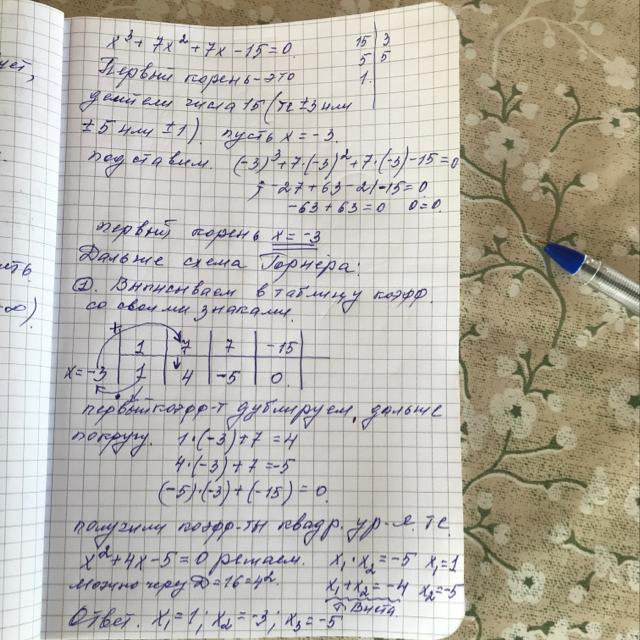 x³+7x²+7x-15=0. 15|3
Первый корень-это 5|5
делители числа 15 (те ±3 или 1.
±5 или ±1). пусть x=-3.
подставим. (-3)³+7·(-3)²+7·(-3)-15=0
; -27+63-21-15=0
-63+63=0 0=0.
первый корень x=-3
Дальше схема Горнера:
①. Выписываем в таблицу коэфф
со своими знаками.
+
1 7 7 -15
x=-3 1 4 -5 0
первый коэфф-т дублируем, дальше
по кругу. 1·(-3)+7=4
4·(-3)+7=-5
(-5)·(-3)+(-15)=0.
получили коэфф-ты квадр. ур-я. те.
x²+4x-5=0 решаем. x₁·x₂=-5 x₁=1
можно через D=16=4². x₁+x₂=-4 x₂=-5
т. Виета.
Ответ. x₁=1; x₂=-3; x₃=-5